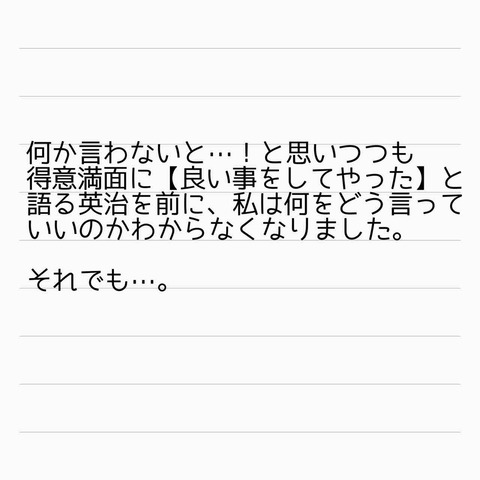 何か言わないと…！と思いつつも
得意満面に【良い事をしてやった】と
語る英治を前に、私は何をどう言って
いいのかわからなくなりました。
それでも…。